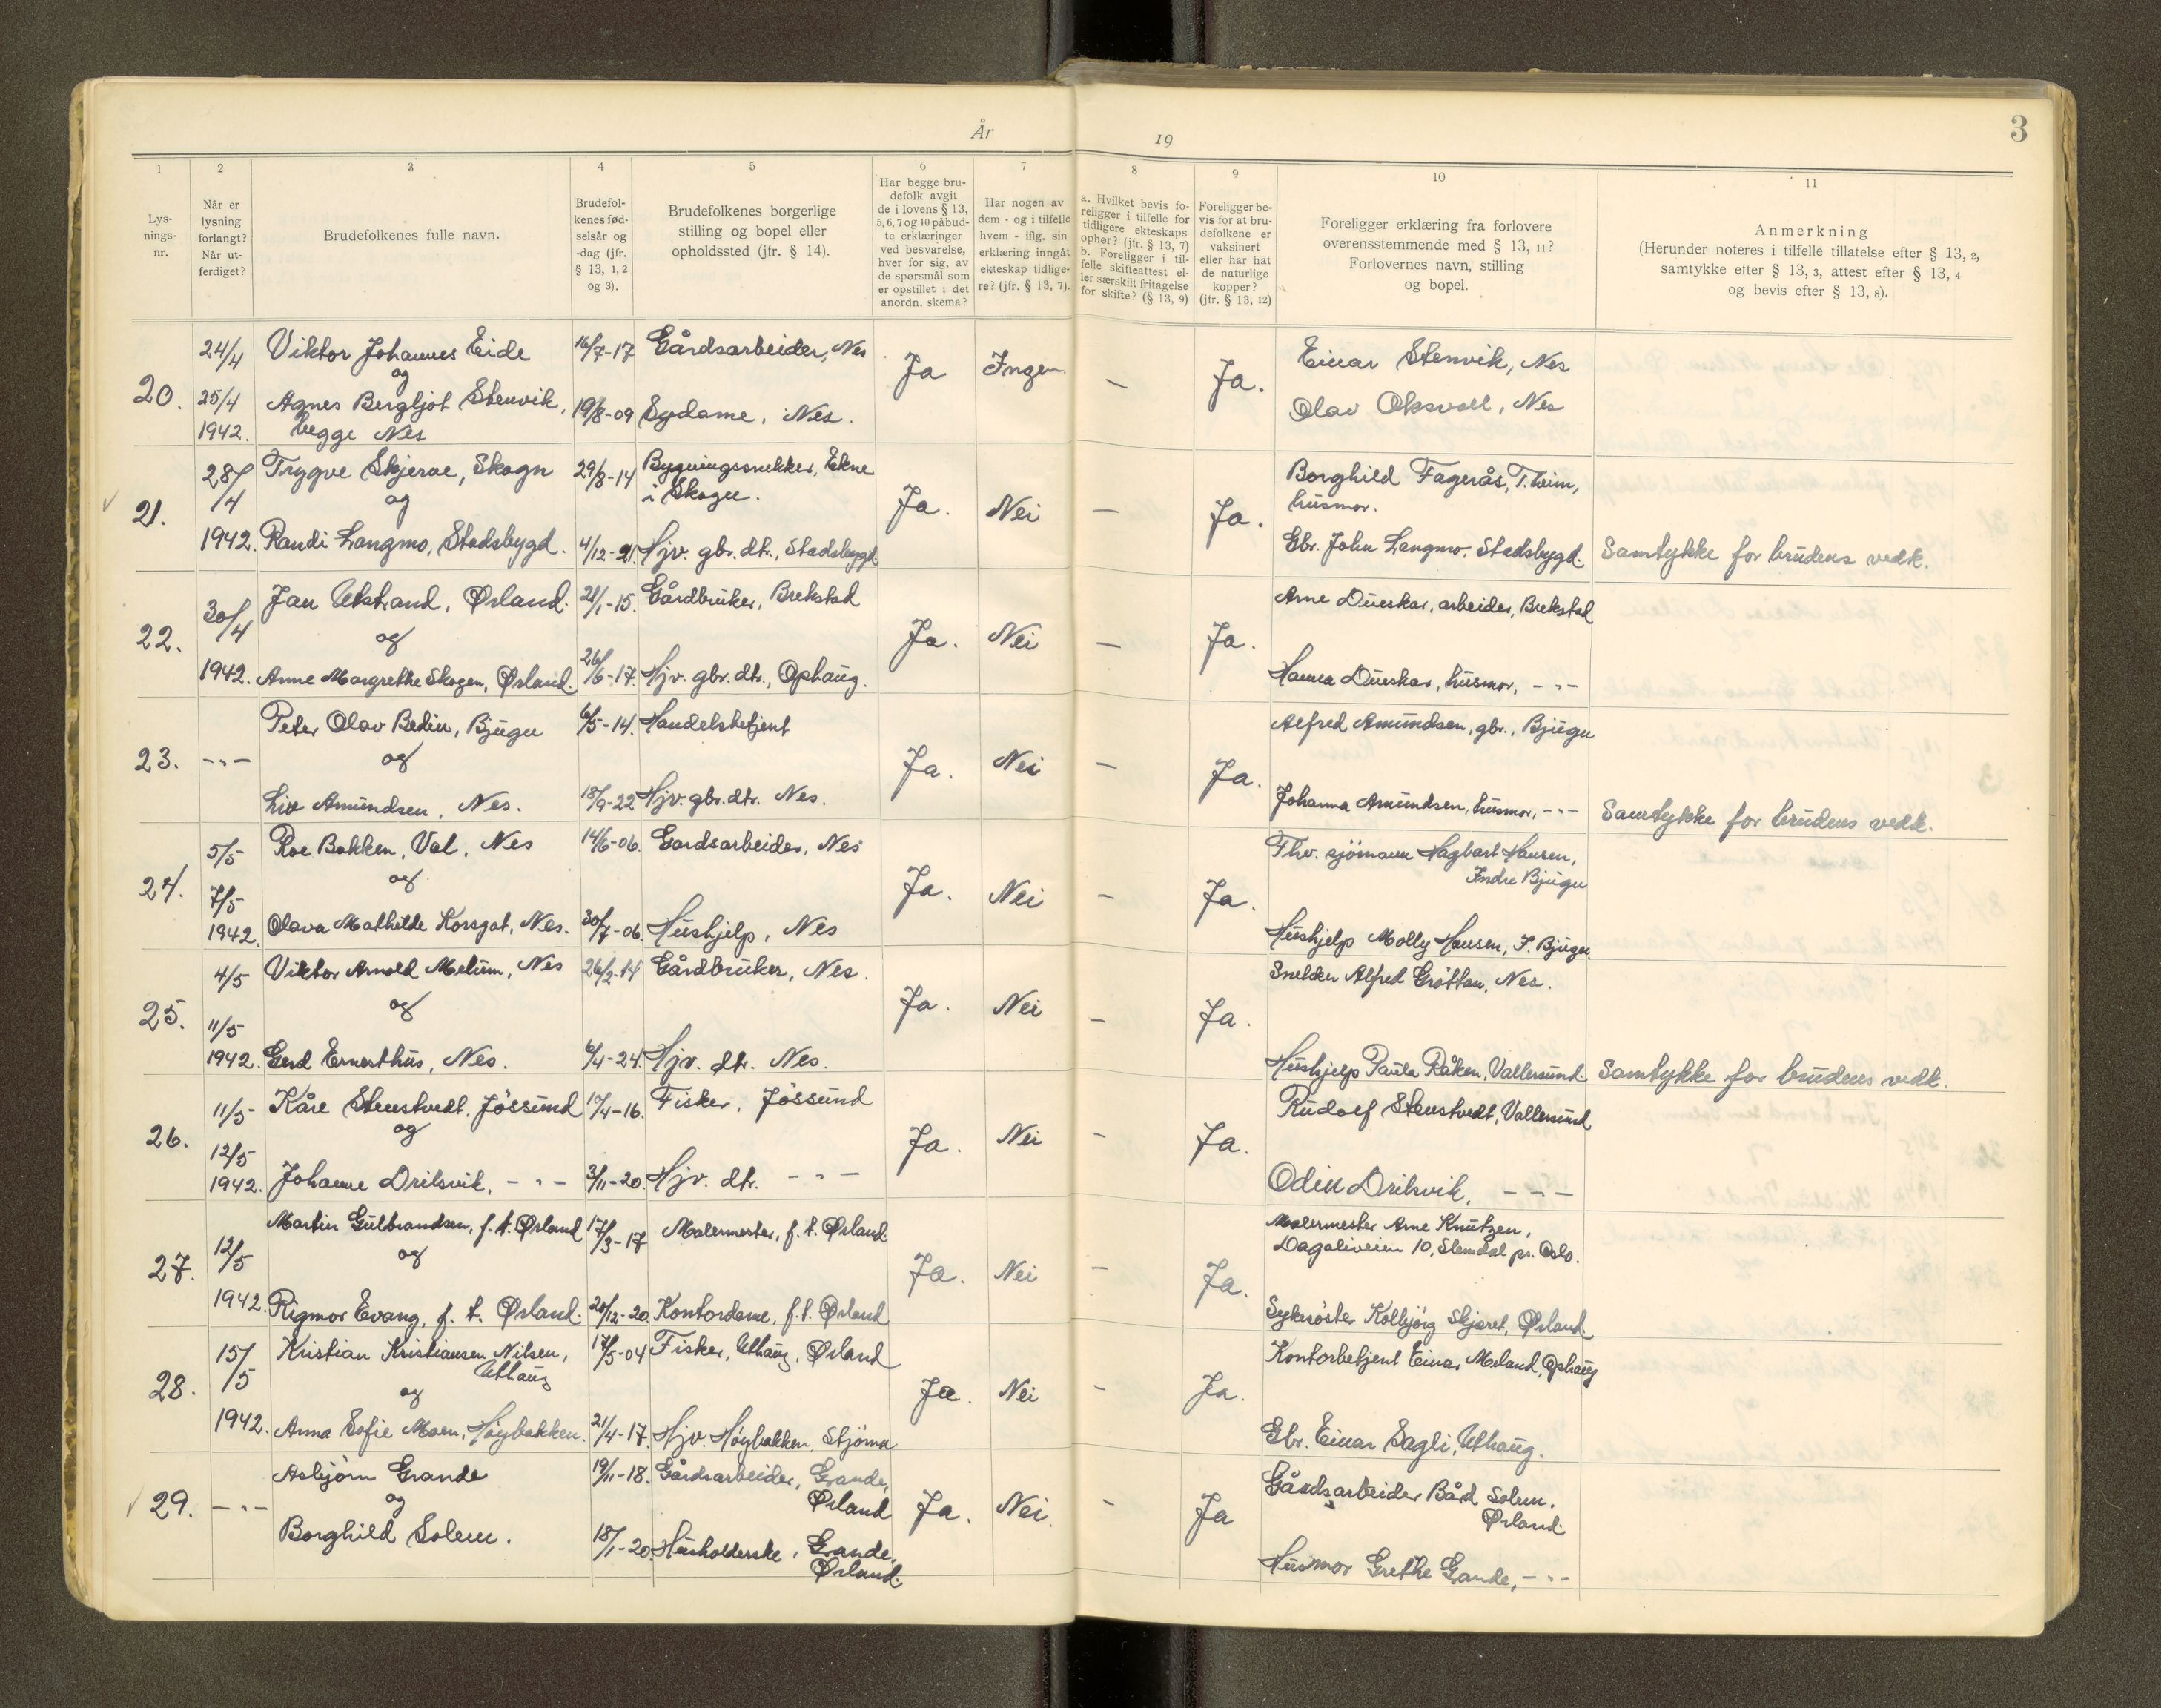 År
19
3
1
Lys-
nings-
nr.
2
Når er
lysning
forlangt?
Når ut-
ferdiget?
3
Brudefolkenes fulle navn.
4
Brudefol-
kenes fød-
selsår og
-dag (jfr.
§ 13, 1, 2
og 3).
5
Brudefolkenes borgerlige
stilling og bopel eller
opholdssted (jfr. § 14).
6
Har begge bru-
defolk avgit
de i lovens § 13,
5, 6, 7 og 10 påbud-
te erklæringer
ved besvarelse,
hver for sig, av
de spørsmål som
er opstillet i det
anordn. skema?
7
Har nogen av
dem - og i tilfelle
hvem - iflg. sin
erklæring inngåt
ekteskap tidlige-
re? (jfr. § 13, 7).
8
a. Hvilket bevis fo-
religger i tilfelle for
tidligere ekteskaps
ophør? (jfr. § 13, 7)
b. Foreligger i til-
felle skifteattest el-
ler særskilt fritagelse
for skifte? (§ 13, 9)
9
Foreligger be-
vis for at bru-
defolkene er
vaksinert
eller har hat
de naturlige
kopper?
(jfr. § 13, 12)
10
Foreligger erklæring fra forlovere
overensstemmende med § 13, 11?
Forlovernes navn, stilling
og bopel.
11
Anmerkning
(Herunder noteres i tilfelle tillatelse efter § 13, 2,
samtykke efter § 13, 3, attest efter § 13, 4
og bevis efter § 13, 8).
20. 24/4 Viktor Johannes Eide 16/7-17 Gårdsarbeider, Nes Ja Ingen. — Ja. Einar Stenvik, Nes
og
25/4 Agnes Bergljot Stenvik, 19/8-09 Sydame, Nes. Olav Oksvoll, Nes
1942. begge Nes
21. 28/4 Trygve Skjerve, Skogn 29/8-14 Bygningssnekker, Ekne Ja. Nei — Ja. Borghild Fagerås, T.heim,
og i Skogn. husmor.
1942. Randi Langmo, Stadsbygd. 4/12-21. Hjv. gbr. dtr., Stadsbygd Gbr. John Langmo, Stadsbygd. Samtykke for brudens vedk.
22. 30/4 Jan Utstrand, Ørland. 21/1-15. Gårdbruker, Brekstad Ja. Nei — Ja. Arne Dueskar, arbeider, Brekstad
og
1942. Anne Margrethe Skogen, Ørland. 26/6-17. Hjv. gbr. dtr., Ophaug. Hanna Dueskar, husmor, -"-
23. -"- Peter Olav Bedin, Bjugn 6/5-14. Handelsbetjent Ja. Nei — Ja. Alfred Amundsen, gbr., Bjugn
og
Liv Amundsen, Nes. 18/9-22 Hjv. gbr. dtr. Nes. Johanna Amundsen, husmor, -"- Samtykke for brudens vedk.
24. 5/5 Roe Bakken, Val, Nes 14/6-06. Gardsarbeider, Nes Ja. Nei — Ja. Fhv. sjömann Hagbart Hansen,
7/5 og Indre Bjugn
1942. Olava Mathilde Korsgat, Nes. 30/7-06. Hushjelp, Nes Hushjelp Molly Hansen, I. Bjugn.
25. 4/5 Viktor Arnold Melum, Nes 26/2-14 Gårdbruker, Nes. Ja. Nei — Ja. Snekker Alfred Gröttan, Nes.
11/5 og
1942 Gerd Ernesthus, Nes. 6/4-24. Hjv. dtr. Nes. Hushjelp Paula Råken, Vallersund. Samtykke for brudens vedk.
26. 11/5 Kåre Stenstvedt, Jössund 10/4-16. Fisker, Jössund Ja. Nei — Ja. Rudolf Stenstvedt, Vallersund
12/5 og
1942. Johanne Drilsvik, -"- 3/11-20. Hjv. dtr. -"- Odin Drilsvik, -"-
27. 12/5 Martin Gulbrandsen, f. t. Ørland 17/3-17 Malermester, f. t. Ørland Ja. Nei — Ja. Malermester Arne Knutzen,
og Dagaliveien 10, Slemdal pr. Oslo.
1942. Rigmor Evang, f. t. Ørland. 20/12-20. Kontordame, f. t. Ørland Sykesöster Kolbjörg Skjæret, Ørland.
28. 15/5 Kristian Kristiansen Nilsen, 17/5-04 Fisker, Uthaug, Ørland Ja. Nei — Ja. Kontorbetjent Einar Meland, Ophaug
Uthaug
og
1942. Anna Sofie Moen, Höybakken. 21/4-17. Hjv. Höybakken, Stjörna Gbr. Einar Sagli, Uthaug.
29. -"- Asbjörn Grande 19/11-18. Gårdsarbeider, Grande, Ja. Nei. — Ja Gårdsarbeider Bård Solem,
og Ørland Ørland.
Borghild Solem. 18/1-20. Husholderske, Grande, Husmor Grethe Grande, -"-
Ørland.